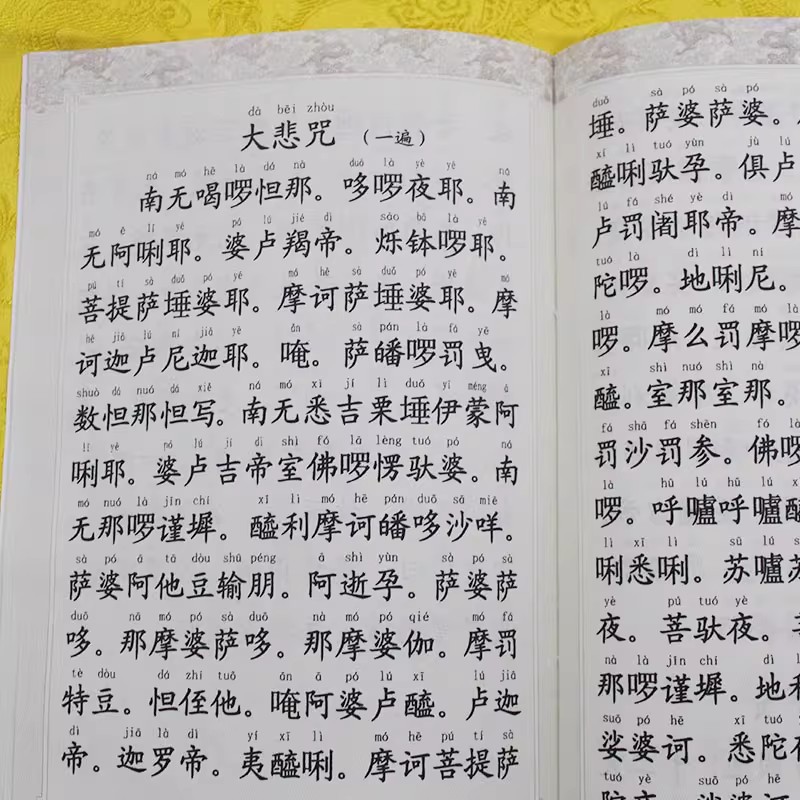 dà bēi zhòu
大悲咒（一遍）
ná mó hē là dá nà duō là yè yē ná
南无喝啰怛那。哆啰夜耶。南
mó ē lì yē pó lú jié dì sāo bō là yē
无阿唎耶。婆卢羯帝。烁钵啰耶。
pú tí sà duǒ pó yē mó hē sà duǒ pó yē mó
菩提萨埵婆耶。摩诃萨埵婆耶。摩
hē jiā lú ní jiā yē ǎn sà pán là fá yè
诃迦卢尼迦耶。唵。萨皤啰罚曳。
shuò dá nuó dá xiě ná mó xī jí lì duǒ yī méng ā
数怛那怛写。南无悉吉栗埵伊蒙阿
lì yē pó lú jí dì shì fó là lèng tuó pó ná
唎耶。婆卢吉帝室佛啰愣驮婆。南
mó nuó là jǐn chí xī lì mó hē pán duō sā miē
无那啰谨墀。醯利摩诃皤哆沙咩。
sà pó ā tā dòu shū péng ā shì yùn sà pó sà
萨婆阿他豆输朋。阿逝孕。萨婆萨
duō nā mó pó sà duō nà mó pó qié mó fá
哆。那摩婆萨哆。那摩婆伽。摩罚
tè dòu dá zhí tuō ǎn ā pó lú xī lú jiā
特豆。怛侄他。唵阿婆卢醯。卢迦
dì jiā là dì yí xī lì mó hē pú tí sà
帝。迦罗帝。夷醯唎。摩诃菩提萨
duǒ sà pó sà pó
埵。萨婆萨婆。
xī lì tuó yùn jù lú
醯唎驮孕。俱卢
lú fá shé yē dì mó
卢罚阇耶帝。摩
là dì lì ní
陀啰。地唎尼。
là mó mó fá mó là
啰。摩么罚摩啰
xī shì nuó shì nà
醯。室那室那。
fá shā fá shēn fó là
罚沙罚参。佛啰
là hū lú hū lú xī
啰。呼嚧呼嚧醯
lì xī lì sū lú sū
唎悉唎。苏嚧苏
yè pú tuó yè
夜。菩驮夜。
nà là jǐn chí dì lì
那啰谨墀。地利
suō pó hē xī tuó yè
娑婆诃。悉陀夜
tuó yè suō pó hē
陀夜。娑婆诃